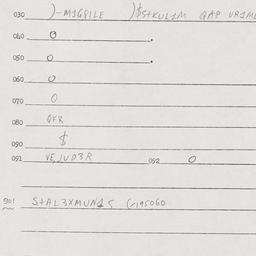 030 )-M1G8ILE )$S+KUL1M QAP URIME
040 0 .
050 0 .
060 0
070 0
080 GFR
090 $
091 VEJUD3R 092 0
901 S+AL3XMUN1S (/195060